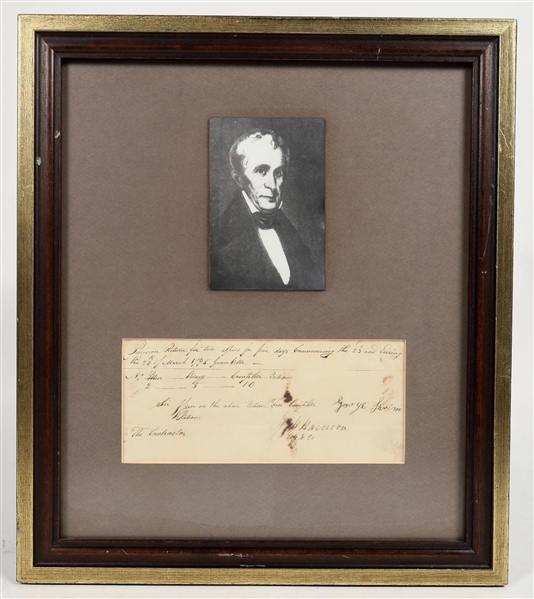 Provision Return for two Spies for five days Commencing the 23 and Ending
the 28th of March 1795
No Men Days Complete Rations
2 5 10
Sir Issue on the above Return Ten Complete
Rations
George
W H Harrison
The Contractor